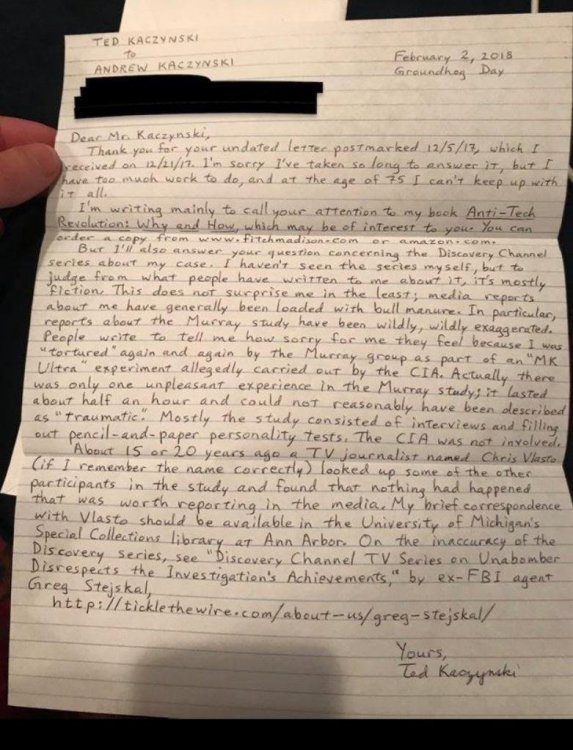 TED KACZYNSKI
to
ANDREW KACZYNSKI
February 2, 2018
Groundhog Day
Dear Mr. Kaczynski,
Thank you for your undated letter postmarked 12/5/17, which I
received on 12/21/17. I'm sorry I've taken so long to answer it, but I
have too much work to do, and at the age of 75 I can't keep up with
it all.
I'm writing mainly to call your attention to my book Anti-Tech
Revolution: Why and How, which may be of interest to you. You can
order a copy from www.fitchmadison.com or amazon.com.
But I'll also answer your question concerning the Discovery Channel
series about my case. I haven't seen the series myself, but to
judge from what people have written to me about it, it's mostly
fiction. This does not surprise me in the least; media reports
about me have generally been loaded with bull manure. In particular,
reports about the Murray study have been wildly, wildly exaggerated.
People write to tell me how sorry for me they feel because I was
"tortured" again and again by the Murray group as part of an "MK
Ultra" experiment allegedly carried out by the CIA. Actually there
was only one unpleasant experience in the Murray study; it lasted
about half an hour and could not reasonably have been described
as "traumatic." Mostly the study consisted of interviews and filling
out pencil-and-paper personality tests. The CIA was not involved.
About 15 or 20 years ago a TV journalist named Chris Vlasto
(if I remember the name correctly) looked up some of the other
participants in the study and found that nothing had happened
that was worth reporting in the media. My brief correspondence
with Vlasto should be available in the University of Michigan's
Special Collections library at Ann Arbor. On the inaccuracy of the
Discovery series, see "Discovery Channel TV Series on Unabomber
Disrespects the Investigation's Achievements," by ex-FBI agent
Greg Stejskal,
http://ticklethewire.com/about-us/greg-stejskal/
Yours,
Ted Kaczynski